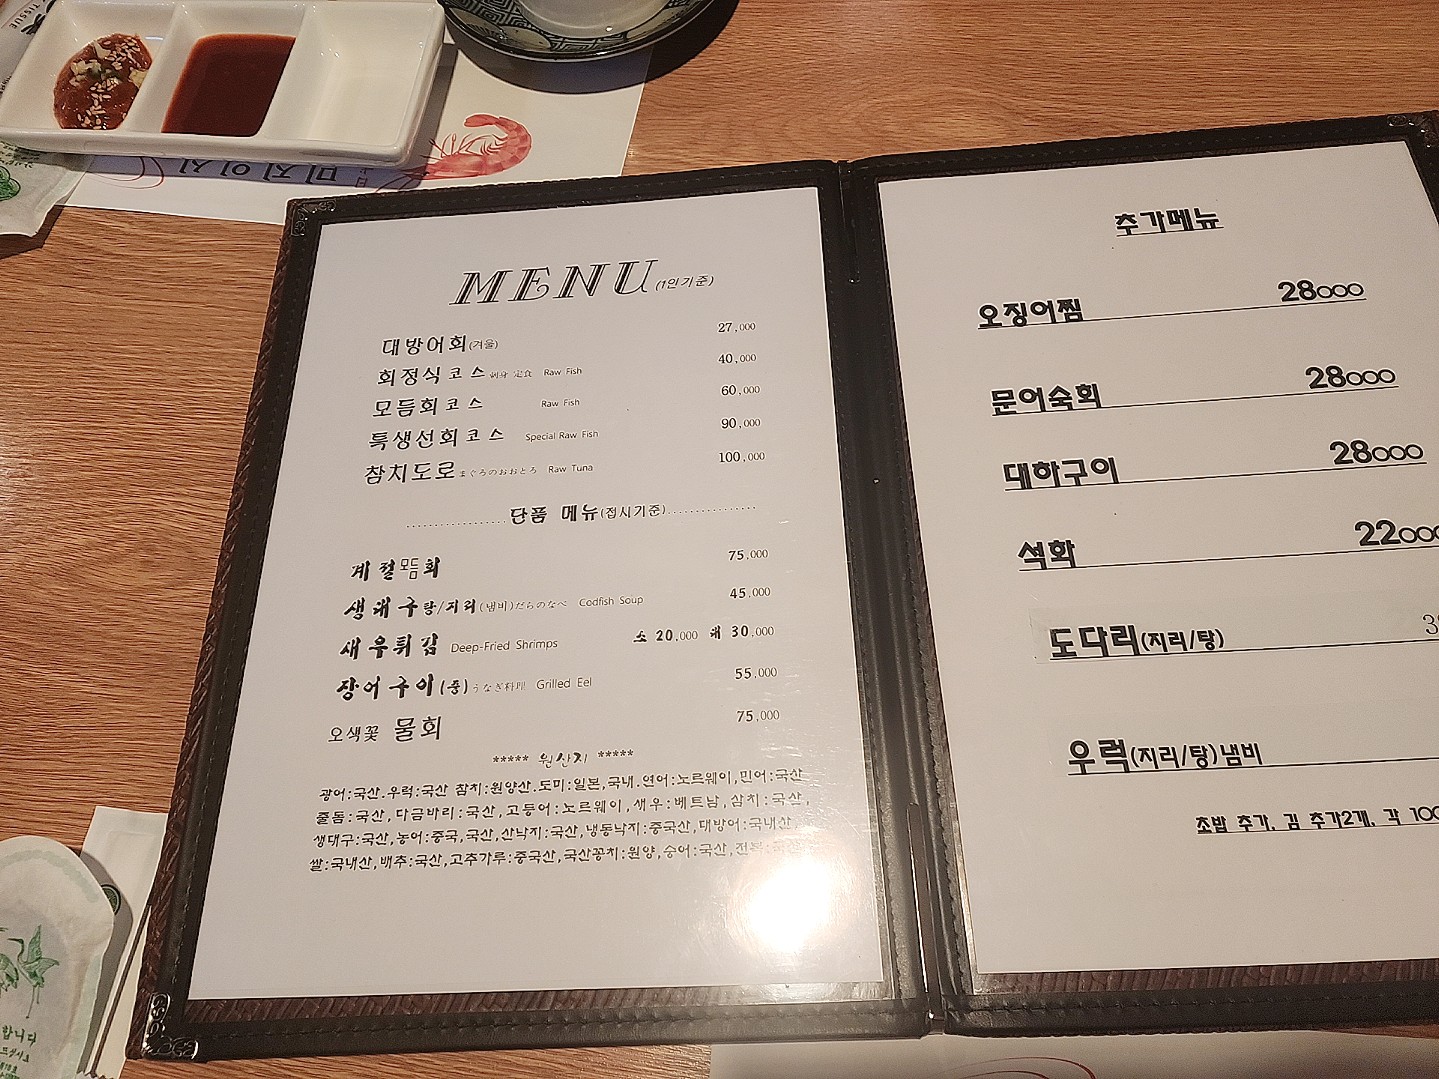 TISSUE
미진일식
MENU (1인기준)
대방어회(겨울) 27,000
회정식코스 刺身 定食 Raw Fish 40,000
모듬회코스 Raw Fish 60,000
특생선회코스 Special Raw Fish 90,000
참치도로 まぐろのおおとろ Raw Tuna 100,000
단품 메뉴(접시기준)
계절모듬회 75,000
생대구탕/지리(냄비)だらのなべ Codfish Soup 45,000
새우튀김 Deep-Fried Shrimps 소 20,000 대 30,000
장어구이(중)うなぎ料理 Grilled Eel 55,000
오색꽃 물회 75,000
***** 원산지 *****
광어:국산.우럭:국산 참치:원양산.도미:일본,국내.연어:노르웨이,민어:국산
줄돔:국산,다금바리:국산,고등어:노르웨이,새우:베트남,삼치:국산,
생태구:국산,농어:중국,국산,산낙지:국산,냉동낙지:중국산,대방어:국내산,
쌀:국내산,배추:국산,고추가루:중국산,국산꽁치:원양,숭어:국산,전복:국산
추가메뉴
오징어찜 28000
문어숙회 28000
대하구이 28000
석화 22000
도다리(지리/탕)
우럭(지리/탕)냄비
초밥 추가, 김 추가2개, 각